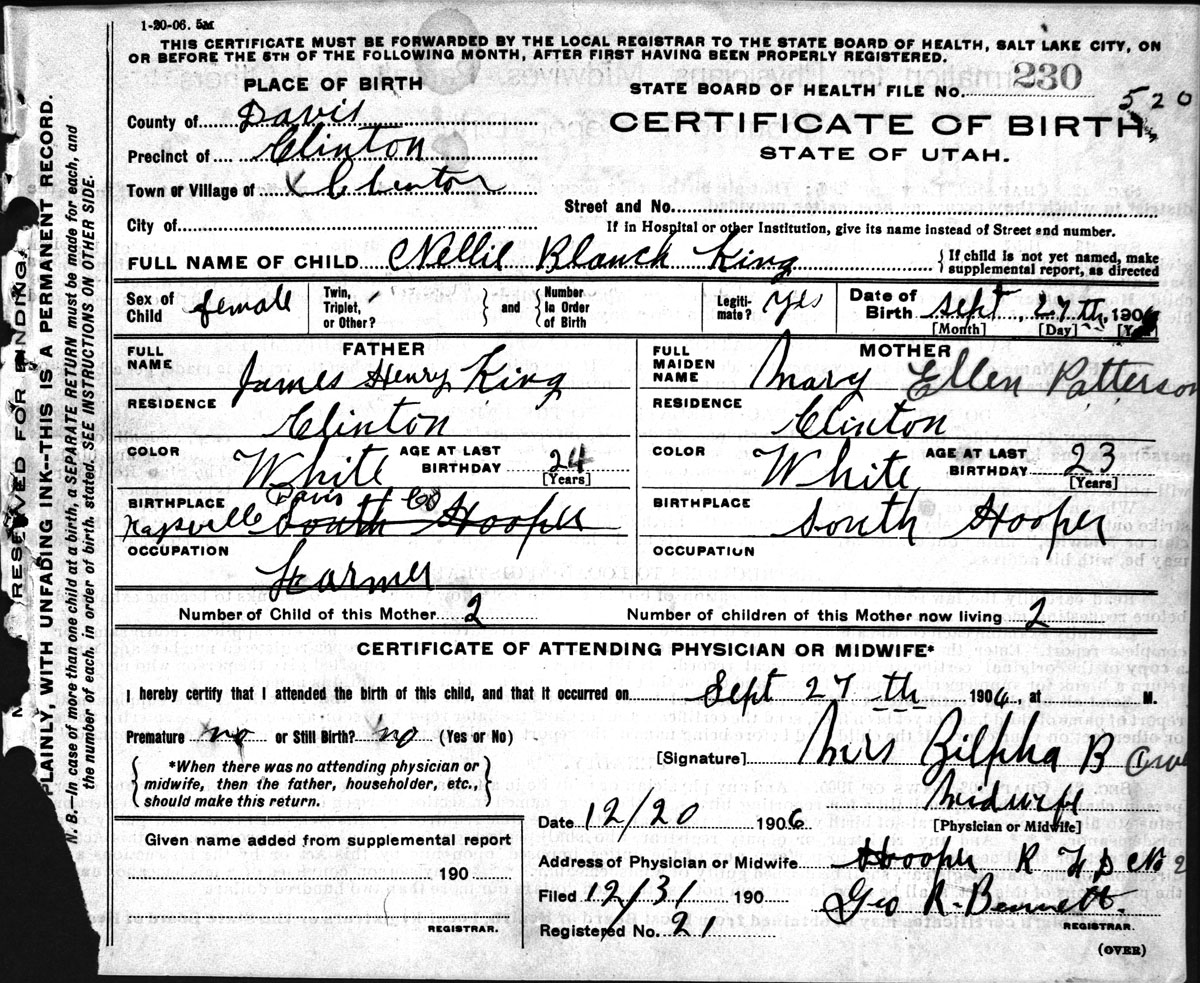 1-20-06. 5M
THIS CERTIFICATE MUST BE FORWARDED BY THE LOCAL REGISTRAR TO THE STATE BOARD OF HEALTH, SALT LAKE CITY, ON
OR BEFORE THE 5TH OF THE FOLLOWING MONTH, AFTER FIRST HAVING BEEN PROPERLY REGISTERED.
PLACE OF BIRTH
STATE BOARD OF HEALTH FILE NO. 230
520
County of Davis
CERTIFICATE OF BIRTH
Precinct of Clinton
STATE OF UTAH.
Town or Village of Clinton
Street and No.
City of
If in Hospital or other Institution, give its name instead of Street and number.
FULL NAME OF CHILD Nellie Blanch King
If child is not yet named, make
supplemental report, as directed
Sex of Child female
Twin, Triplet, or Other? and Number In Order of Birth
Legiti-mate? yes
Date of Birth Sept 27th, 1906
[Month] [Day]
FATHER
FULL NAME James Henry King
RESIDENCE Clinton
COLOR White AGE AT LAST BIRTHDAY 24
[Years]
BIRTHPLACE Kaysville Davis Co South Hooper
OCCUPATION Farmer
MOTHER
FULL MAIDEN NAME Mary Ellen Patterson
RESIDENCE Clinton
COLOR White AGE AT LAST BIRTHDAY 23
[Years]
BIRTHPLACE South Hooper
OCCUPATION
Number of Child of this Mother 2
Number of children of this Mother now living 2
CERTIFICATE OF ATTENDING PHYSICIAN OR MIDWIFE*
I hereby certify that I attended the birth of this child, and that it occurred on Sept 27th 1906, at M.
Premature no or Still Birth? no (Yes or No)
[Signature] Mrs Zilpha B
*When there was no attending physician or
midwife, then the father, householder, etc.,
should make this return.
Midwife
[Physician or Midwife]
Date 12/20 1906
Given name added from supplemental report
190
REGISTRAR.
Address of Physician or Midwife Hooper R F D No 2
Filed 12/31 190 Geo R. Bennett
REGISTRAR.
Registered No. 21
(OVER)
RESERVED FOR BINDING
PLAINLY, WITH UNFADING INK--THIS IS A PERMANENT RECORD.
N. B. In case of more than one child at a birth, a SEPARATE RETURN must be made for each, and
the number of each, in order of birth, stated. SEE INSTRUCTIONS ON OTHER SIDE.